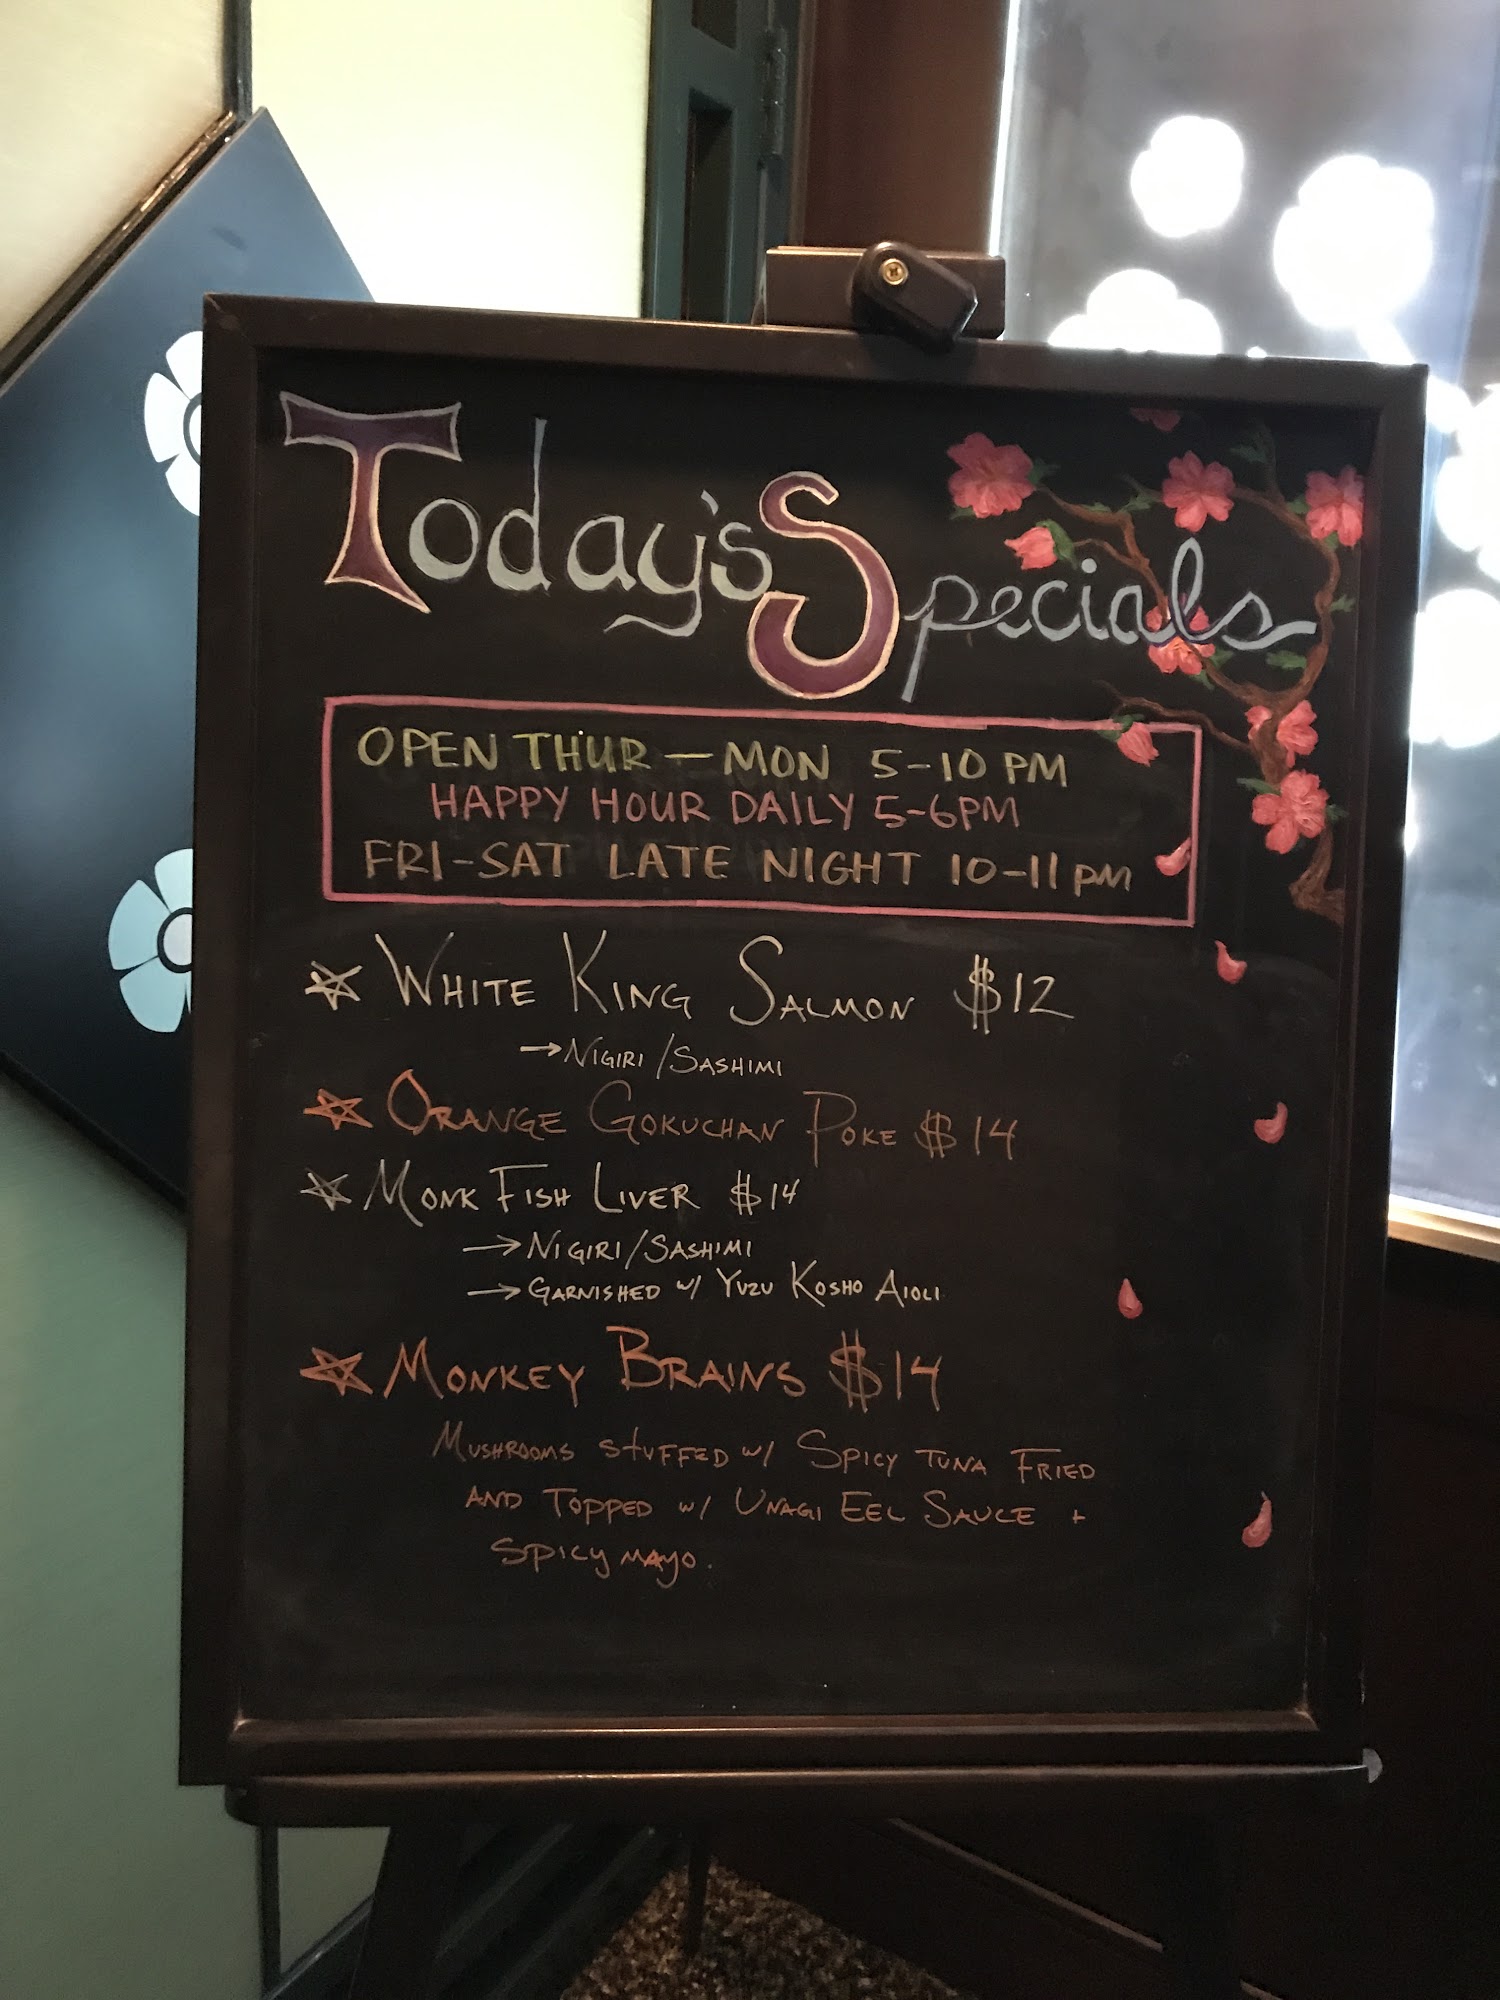 Today's Specials
OPEN THUR — MON 5-10 PM
HAPPY HOUR DAILY 5-6PM
FRI-SAT LATE NIGHT 10-11 PM
WHITE KING SALMON $12
→ NIGIRI/SASHIMI
ORANGE GOKUCHAN POKE $14
MONK FISH LIVER $14
→ NIGIRI/SASHIMI
→ GARNISHED W/ YUZU KOSHO AIOLI
MONKEY BRAINS $14
MUSHROOMS STUFFED W/ SPICY TUNA FRIED
AND TOPPED W/ UNAGI EEL SAUCE +
SPICY MAYO.